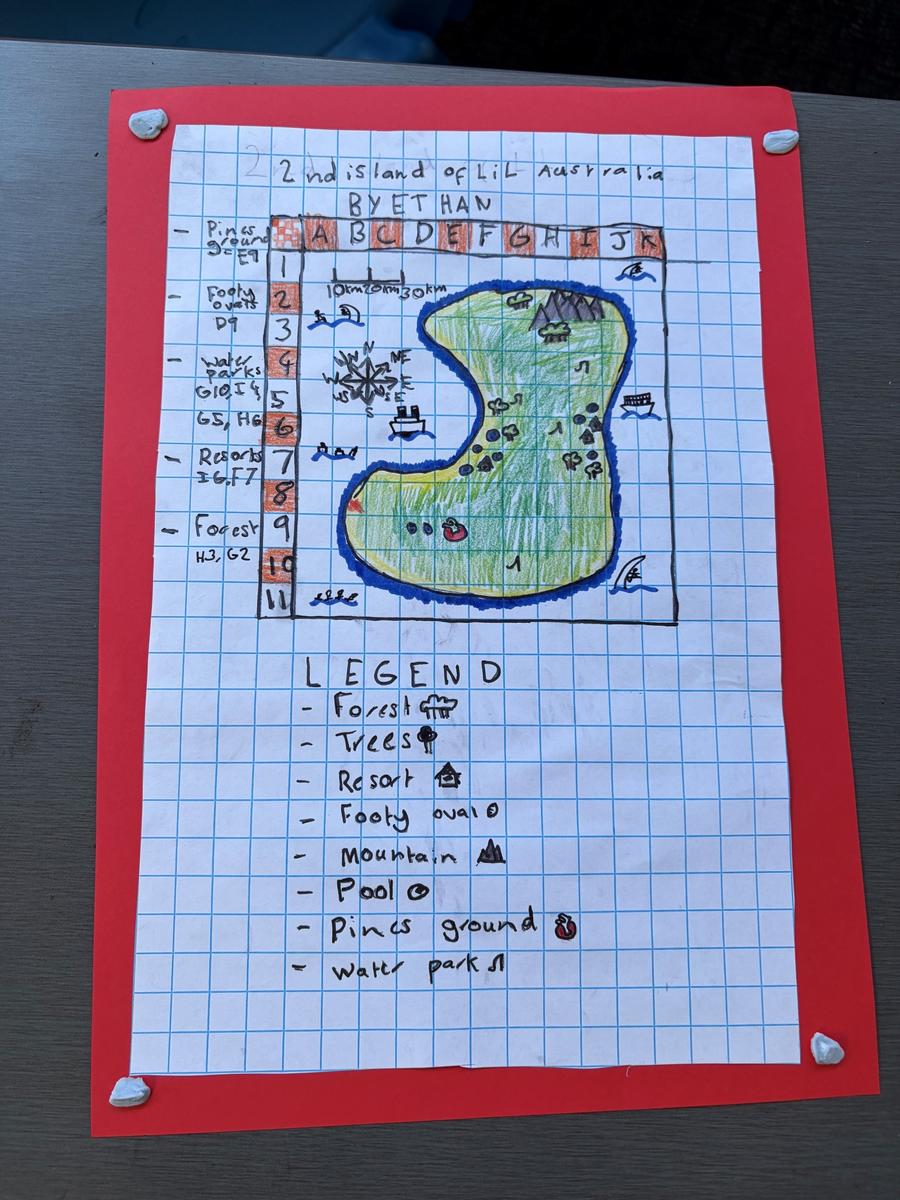 2nd island of LiL Australia
BY ETHAN
- Pines ground = E9
A B C D E F G H I J K
1
2
3
4
5
6
7
8
9
10
11
- Footy ovals
D9
- water parks
G10, I4
G5, H6
- Resorts
I6, F7
- Forest
H3, G2
10km 20km 30km
N
NE
E
SE
S
W
LEGEND
- Forest
- Trees
- Resort
- Footy oval
- Mountain
- Pool
- Pines ground
- water park